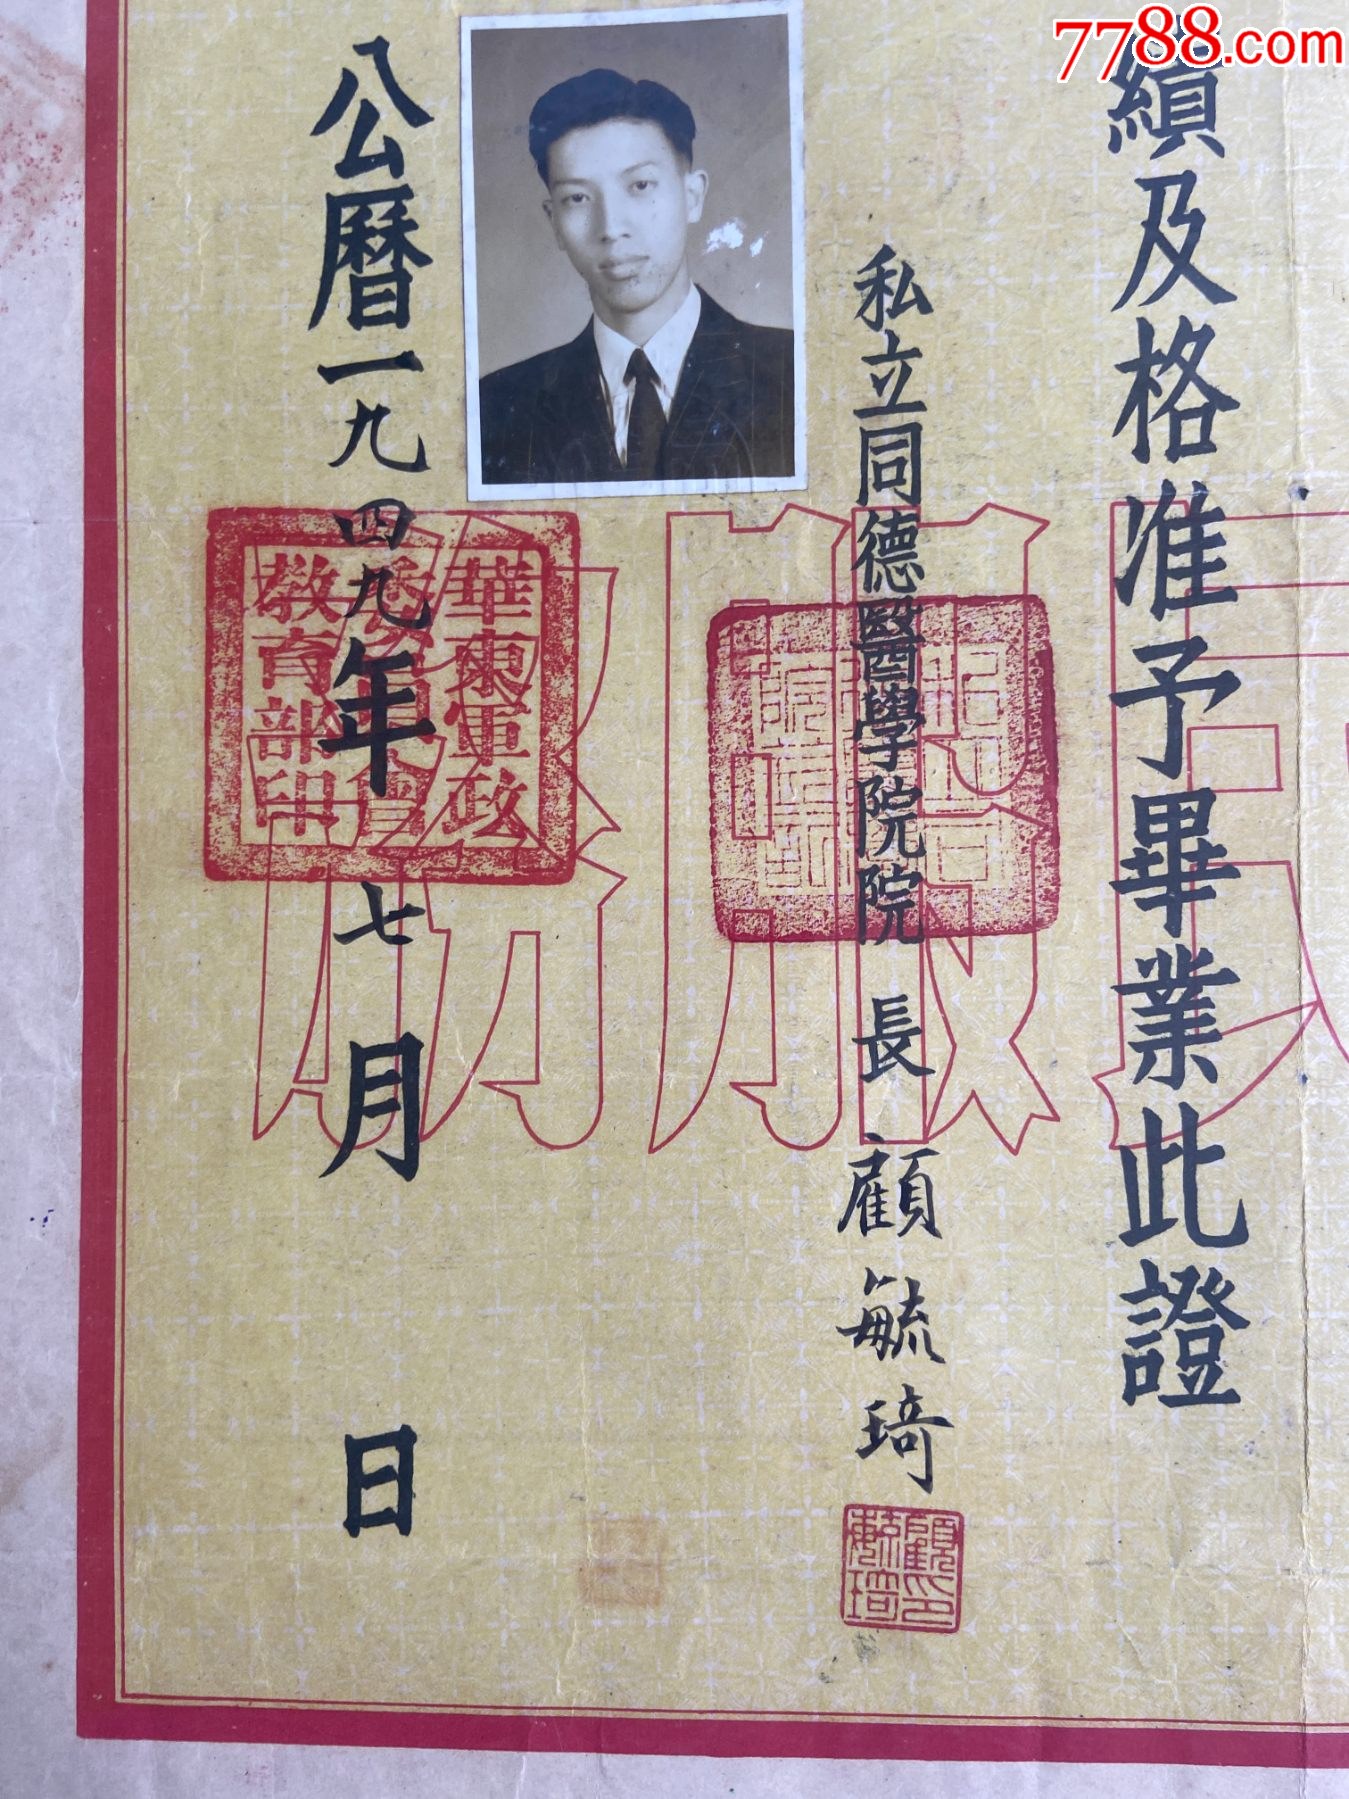 7788.com
績及格准予畢業此證
私立同德醫學院院長顧毓琦
顧毓琦印
公曆一九四九年七月日
華東軍政
委員會
教育部印
服務